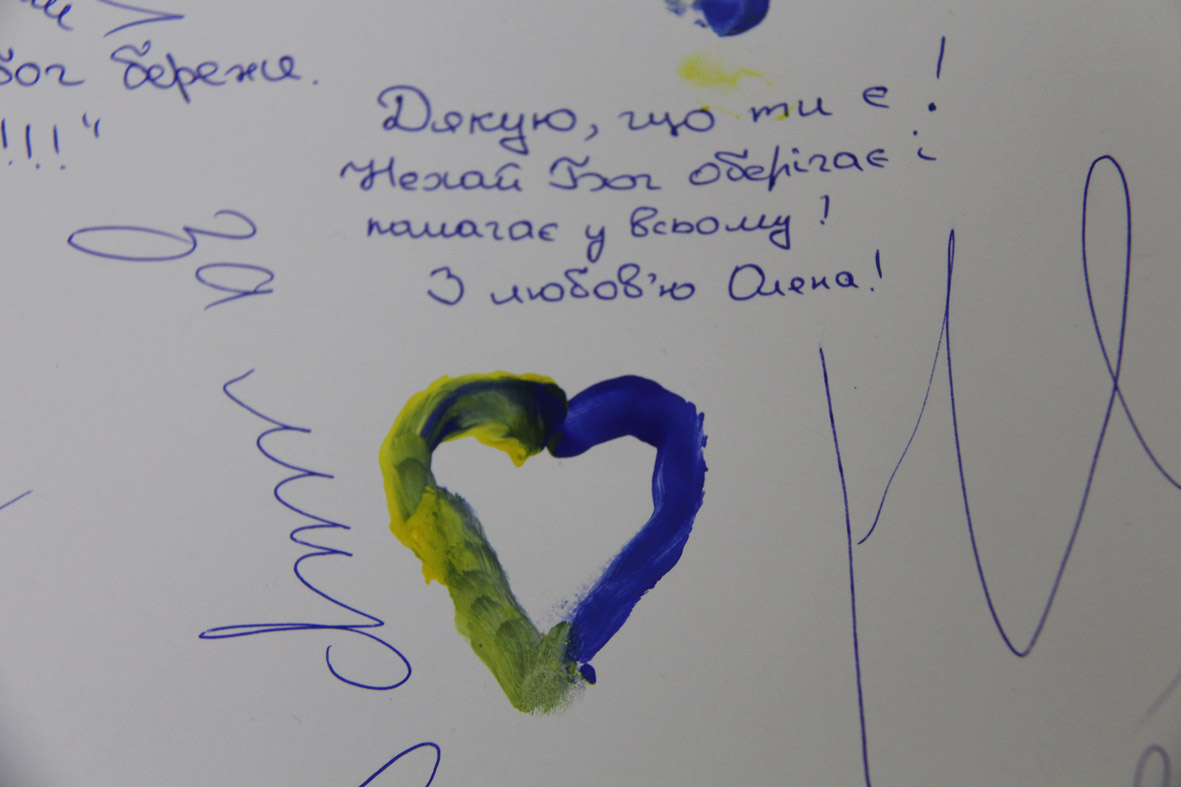 бог береже.
!!!"
Дякую, що ти є!
Нехай Бог оберігає і
памагає у всьому!
З любов'ю Олена!
За
мир